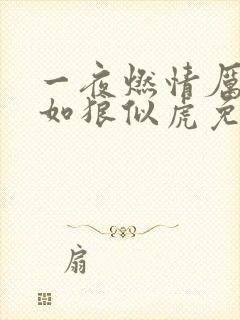 一夜燃情厲
如狼似虎免
扇